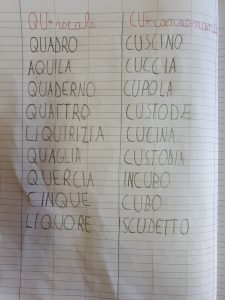 QU+vocale CU+consonante
QUADRO CUSCINO
AQUILA CUCCIA
QUADERNO CUPOLA
QUATTRO CUSTODE
LIQUIRIZIA CUCINA
QUAGLIA CUSTODIA
QUERCIA INCUBO
CINQUE CUBO
LIQUORE SCUDETTO